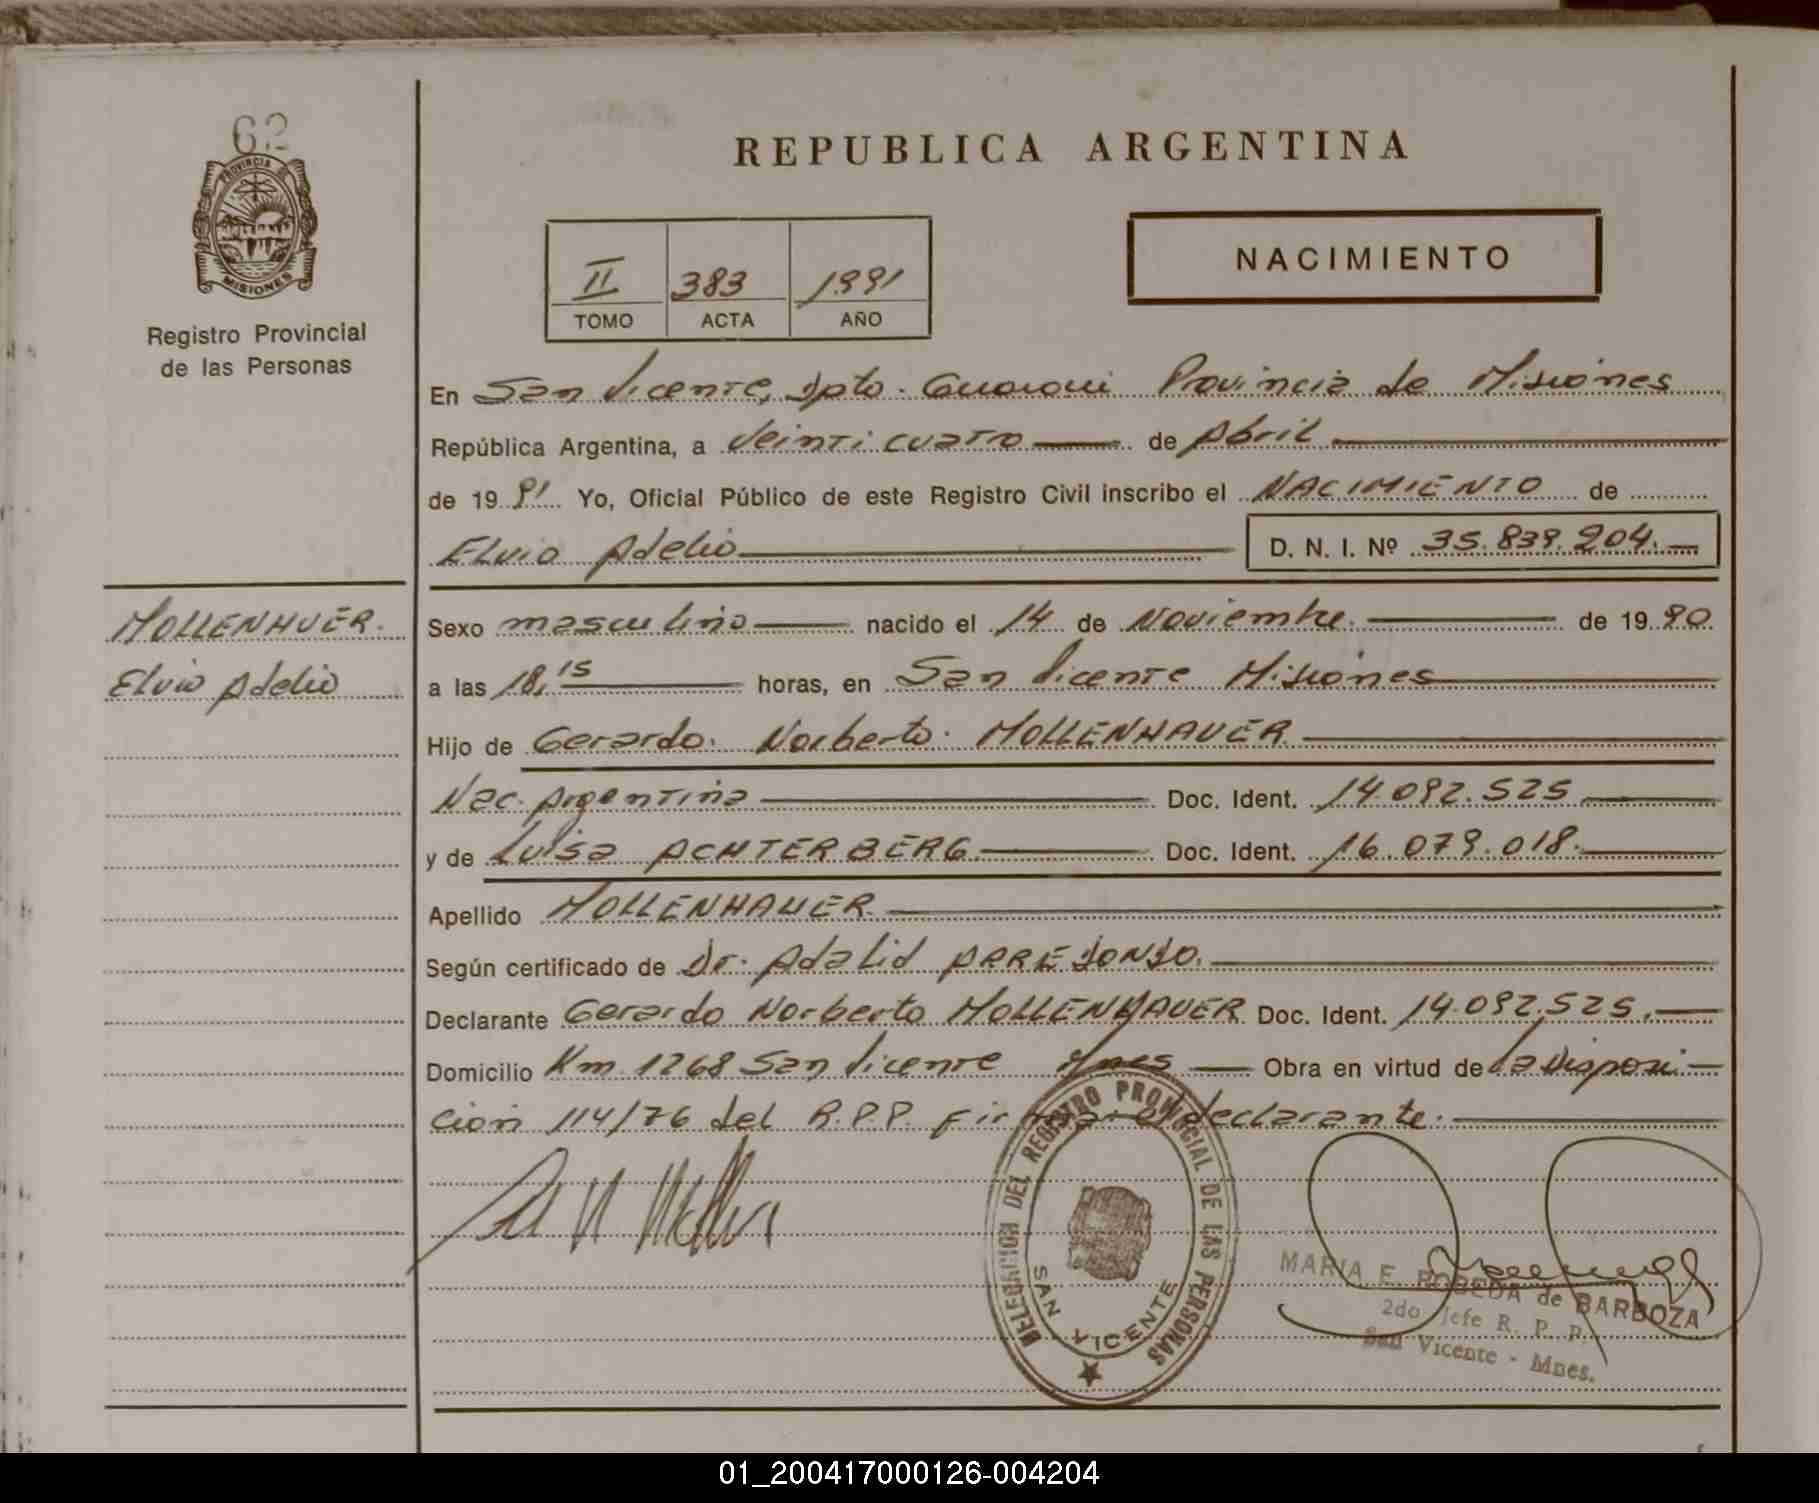 62
PROVINCIA DE
MISIONES
Registro Provincial
de las Personas
REPUBLICA ARGENTINA
II 383 1991
TOMO ACTA AÑO
NACIMIENTO
En San Vicente, Dpto. Guarani Provincia de Misiones
República Argentina, a Veinticuatro de Abril
de 1991 Yo, Oficial Público de este Registro Civil inscribo el NACIMIENTO de
Elvio Adelio D. N. I. Nº 35.839.204.
MOLLENHUER.
Elvio Adelio
Sexo masculino nacido el 14 de Noviembre. de 1990
a las 18,15 horas, en San Vicente Misiones
Hijo de Gerardo. Norberto. MOLLENHAUER
Nac. Argentina Doc. Ident. 14.092.525
y de Luisa ACHTERBERG. Doc. Ident. 16.079.018.
Apellido MOLLENHAUER.
Según certificado de Dr. Adalid
Declarante Gerardo Norberto MOLLENHAUER Doc. Ident. 14.092.525.
Domicilio Km 1268 San Vicente Mnes Obra en virtud de la Disposi-
ción 114/76 del R.P.P. firmará el declarante.
DELEGACION DEL REGISTRO PROVINCIAL DE LAS PERSONAS
SAN VICENTE
MARIA E. ROBEDA de BARBOZA
2do Jefe R. P. P.
San Vicente - Mnes.
01_200417000126-004204